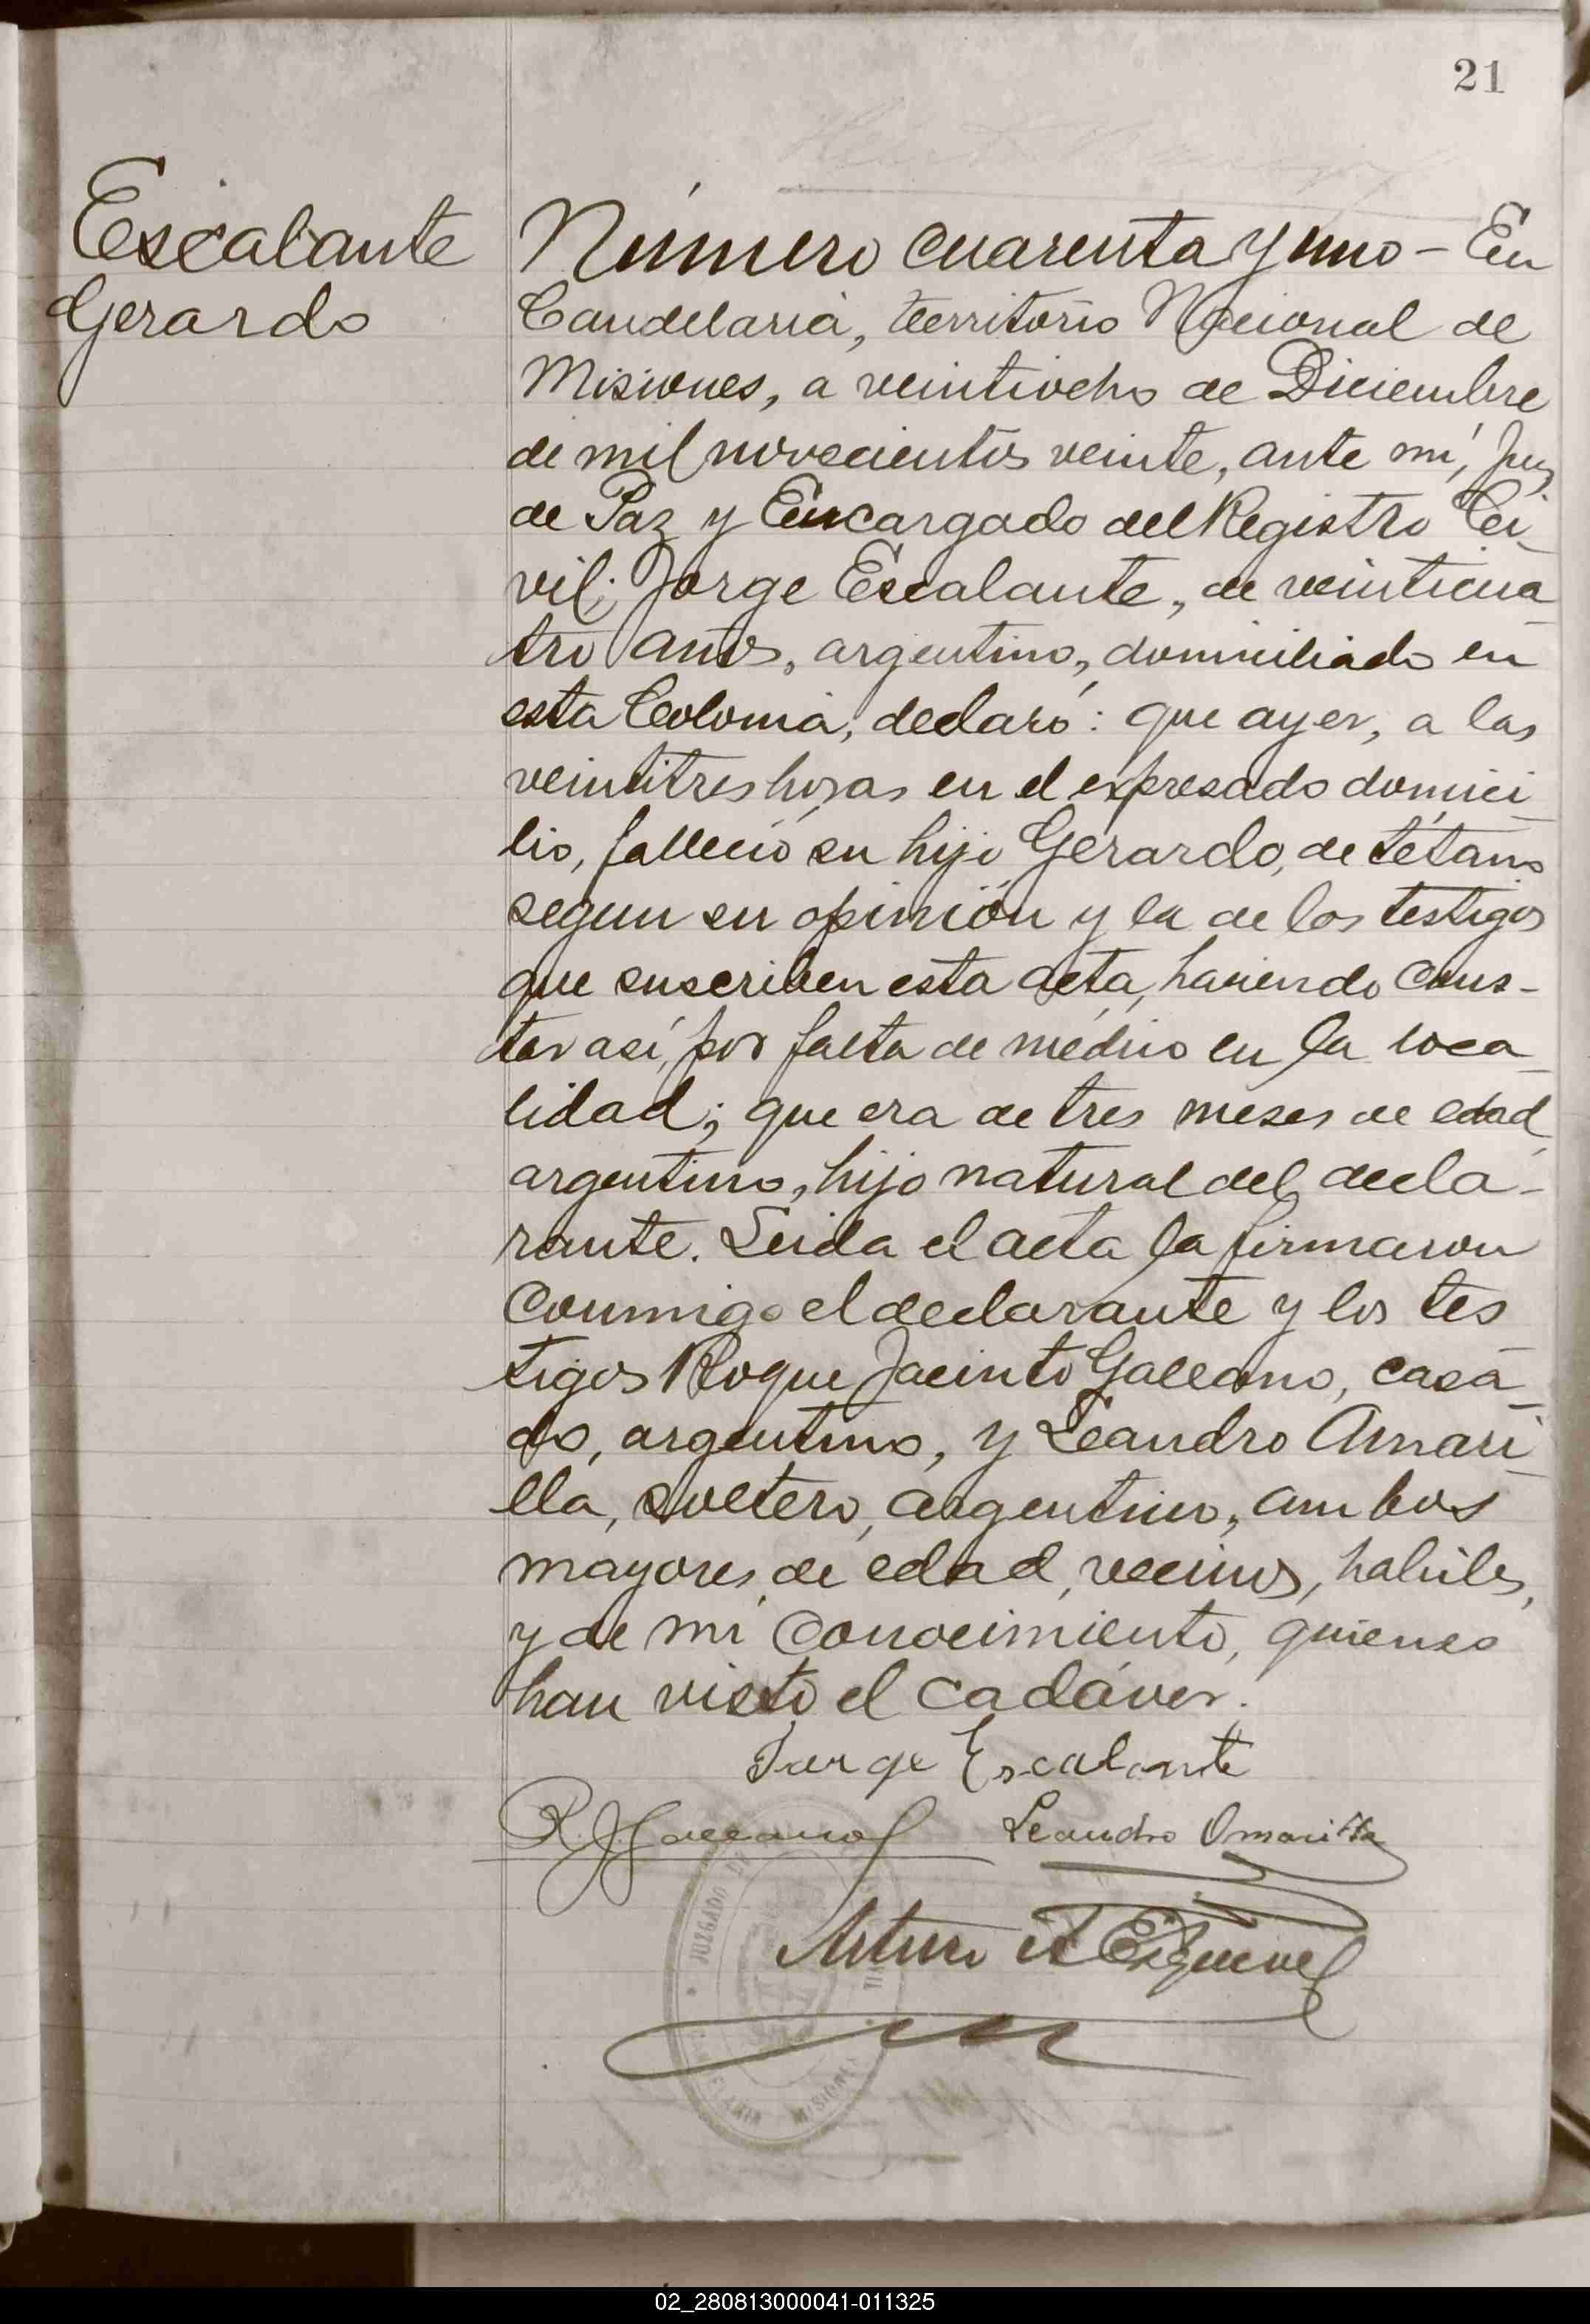 21
Escalante
Gerardo
Número cuarenta y uno - En
Candelaria, territorio Nacional de
Misiones, a veintiocho de Diciembre
de mil novecientos veinte, ante mí, Juez
de Paz y Encargado del Registro Ci-
vil; Jorge Escalante, de veinticua-
tro años, argentino, domiciliado en
esta Colonia, declaró: que ayer, a las
veintitres horas en el expresado domici-
lio, falleció su hijo Gerardo, de tétano
segun su opinión y la de los testigos
que suscriben esta acta, haciendo cons-
tar así, por falta de médico en la loca-
lidad; que era de tres meses de edad,
argentino, hijo natural del decla-
rante. Leida el acta la firmaron
conmigo el declarante y los tes-
tigos Roque Jacinto Galeano, casa-
do, argentino, y Leandro Amari-
lla, soltero, argentino, ambos
mayores de edad, vecinos, habiles,
y de mi conocimiento, quienes
han visto el cadáver.
Jorge Escalante
R. J. Galeano Leandro Amarilla
Arturo Esquivel
JUZGADO DE
MISIONES
02_280813000041-011325